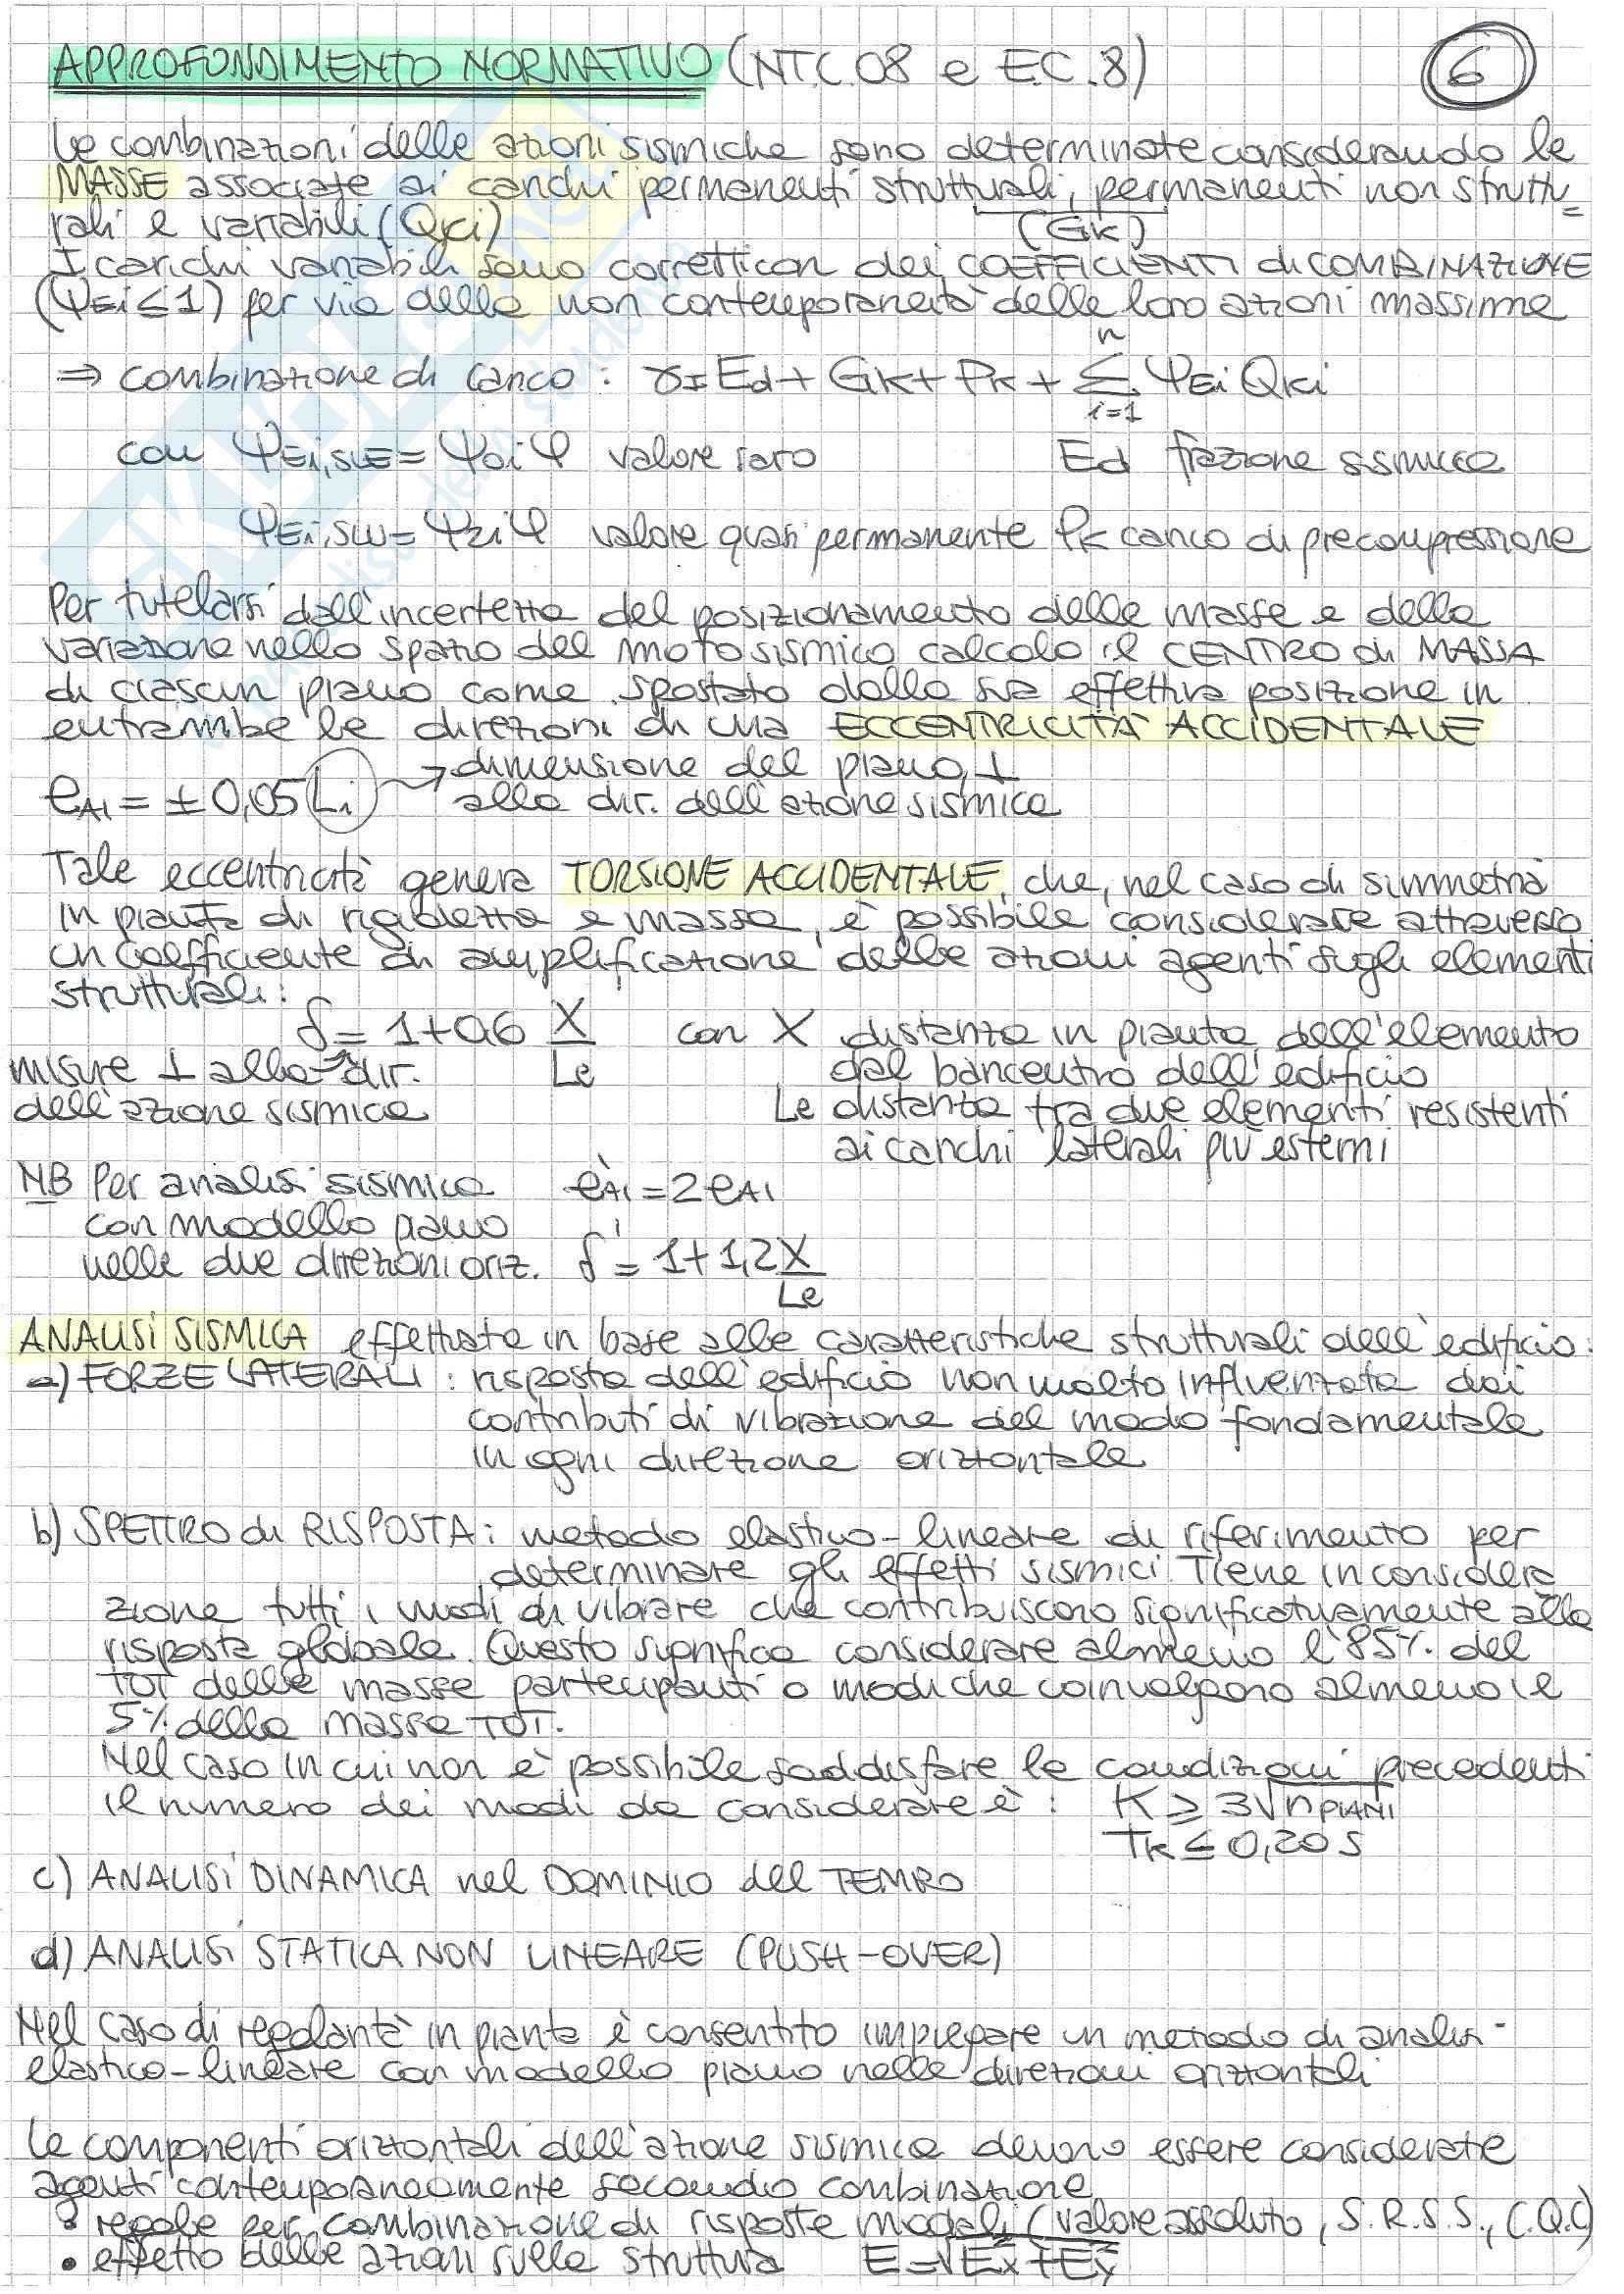 APPROFONDIMENTO NORMATIVO (N.T.C. 08 e E.C. 8) 6
Le combinazioni delle azioni sismiche sono determinate considerando le
MASSE associate ai carichi permanenti strutturali, permanenti non struttu=
rali e variabili (Qki) (Gk)
I carichi variabili sono corretti con dei COEFFICIENTI di COMBINAZIONE
(ΨEi ≤ 1) per via della non contemporaneità delle loro azioni massime
⇒ combinazione di carico : γI Ed + Gk + Pk + Σ(i=1 → n) ΨEi Qki
con ΨEi,SLE = Ψ0i φ valore raro Ed frazione sismica
ΨEi,SLU = Ψ2i φ valore quasi permanente Pk carico di precompressione
Per tutelarsi dall'incertezza del posizionamento delle masse e della
variazione nello spazio del moto sismico calcolo il CENTRO di MASSA
di ciascun piano come spostato dalla sua effettiva posizione in
entrambe le direzioni di una ECCENTRICITÀ ACCIDENTALE
eAi = ± 0,05 Li → dimensione del piano, ⊥
alla dir. dell'azione sismica
Tale eccentricità genera TORSIONE ACCIDENTALE, che, nel caso di simmetria
in pianta di rigidezza e massa, è possibile considerare attraverso
un coefficiente di amplificazione delle azioni agenti sugli elementi
strutturali:
δ = 1 + 0,6 X/Le con X distanza in pianta dell'elemento
misure ⊥ alla dir. dal baricentro dell'edificio
dell'azione sismica Le distanza tra due elementi resistenti
ai carichi laterali più esterni
NB Per analisi sismica e'Ai = 2eAi
con modello piano
nelle due direzioni oriz. δ' = 1 + 1,2 X/Le
ANALISI SISMICA effettuata in base alle caratteristiche strutturali dell'edificio:
a) FORZE LATERALI : risposta dell'edificio non molto influenzata dai
contributi di vibrazione del modo fondamentale
in ogni direzione orizzontale
b) SPETTRO di RISPOSTA : metodo elastico-lineare di riferimento per
determinare gli effetti sismici. Tiene in considera
zione tutti i modi di vibrare che contribuiscono significativamente alla
risposta globale. Questo significa considerare almeno l'85% del
TOT delle masse partecipanti o modi che coinvolgono almeno il
5% della massa TOT.
Nel caso in cui non è possibile soddisfare le condizioni precedenti
il numero dei modi da considerare è : K ≥ 3√nPIANI
TK ≤ 0,20 s
c) ANALISI DINAMICA nel DOMINIO del TEMPO
d) ANALISI STATICA NON LINEARE (PUSH-OVER)
Nel caso di regolarità in pianta è consentito impiegare un metodo di analisi
elastico-lineare con modello piano nelle direzioni orizzontali
Le componenti orizzontali dell'azione sismica devono essere considerate
agenti contemporaneamente secondo combinazione
• regole per combinazione di risposte modali (valore assoluto, S.R.S.S., C.Q.C)
• effetto delle azioni sulla struttura E = √Ex² + Ey²